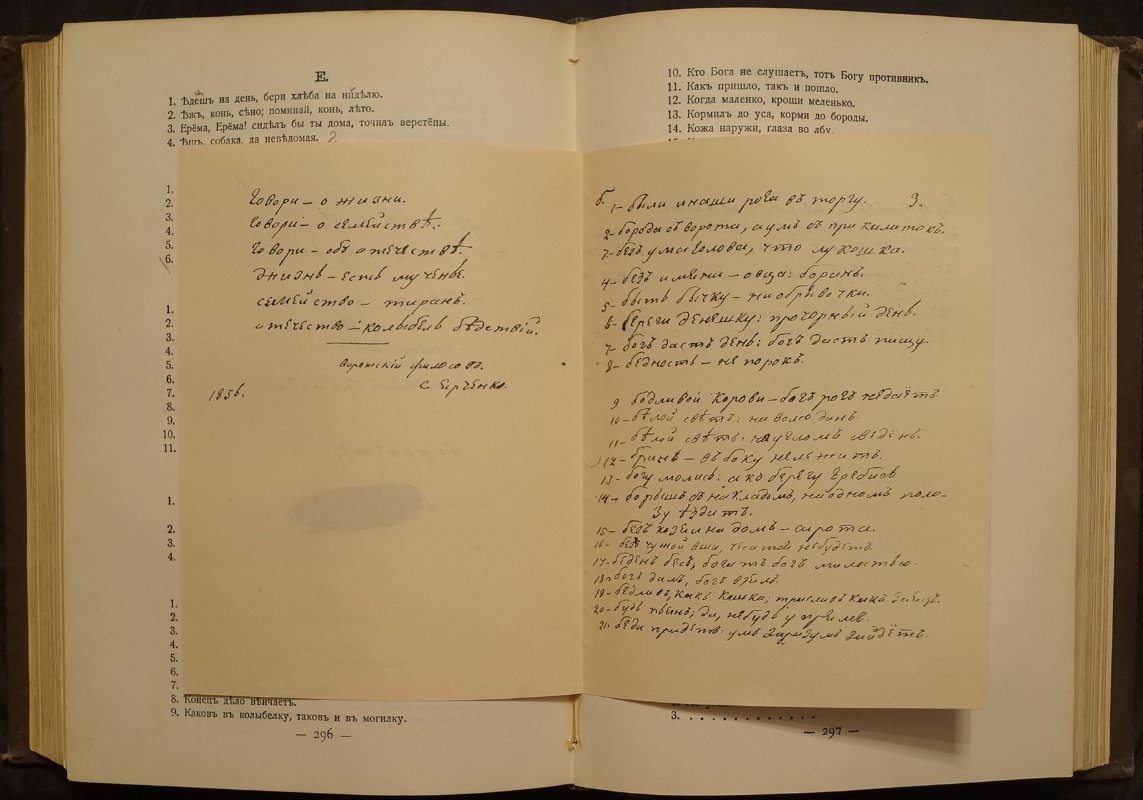 Е.
1. Ѣдешь на день, бери хлѣба на нидѣлю.
2. Ѣжъ, конь, сѣно; поминай, конь, лѣто.
3. Ерёма, Ерёма! сидѣлъ бы ты дома, точилъ веретёны.
4. Ѣшь, собака, да невѣдомая. 2
1.
2.
3.
4.
5.
6.
1.
2.
3.
4.
5.
6.
7.
8.
9.
10.
11.
1.
2.
3.
4.
1.
2.
3.
4.
5.
6.
7.
8. Конецъ дѣло вѣнчаетъ.
9. Каковъ въ колыбелку, таковъ и въ могилку.
— 296 —
Говори — о жизни.
Говори — о семействѣ.
Говори — объ отечествѣ.
Жизнь — есть мученье.
семейство — тиранъ.
отечество — колыбель бѣдствій.
философъ
1836.
С.
10. Кто Бога не слушаетъ, тотъ Богу противникъ.
11. Какъ пришло, такъ и пошло.
12. Когда маленко, кроши меленько.
13. Кормилъ до уса, корми до бороды.
14. Кожа наружи, глаза во лбу.
б. 1 — были и наши рога въ торгу. 3.
2 — борода съ ворота, а умъ съ прикалитокъ.
3 — безъ ума голова, что лукошка.
4 — безъ имени — овца: боранъ.
5 — быть бычку — на обривочки.
6 — береги денешку: про чорный день.
7 — богъ дастъ день: богъ дастъ пищу.
8 — бедность — не порокъ.
9 бодливой корови — богъ рогъ недаётъ.
10 — бѣлой свѣтъ: на волю данъ.
11 — бѣлой свѣтъ: не
12 — брань — въ боку нележитъ.
13 — богу молись: а къ берегу гребись
14 — барышъ съ накладомъ, на одномъ поло-
зу ѣздитъ.
15 — безъ хозяина домъ — сирота.
16 — чужой
17 — беденъ бесъ, богатъ богъ милостью.
18 — богъ далъ, богъ взялъ.
19 — бедливъ, какъ кошка; трусливъ какъ заецъ.
20 — будь да, небудь
21 — беда придетъ: умъ заразумъ зайдётъ.
3. . . . . . . . . . . . . .
— 297 —